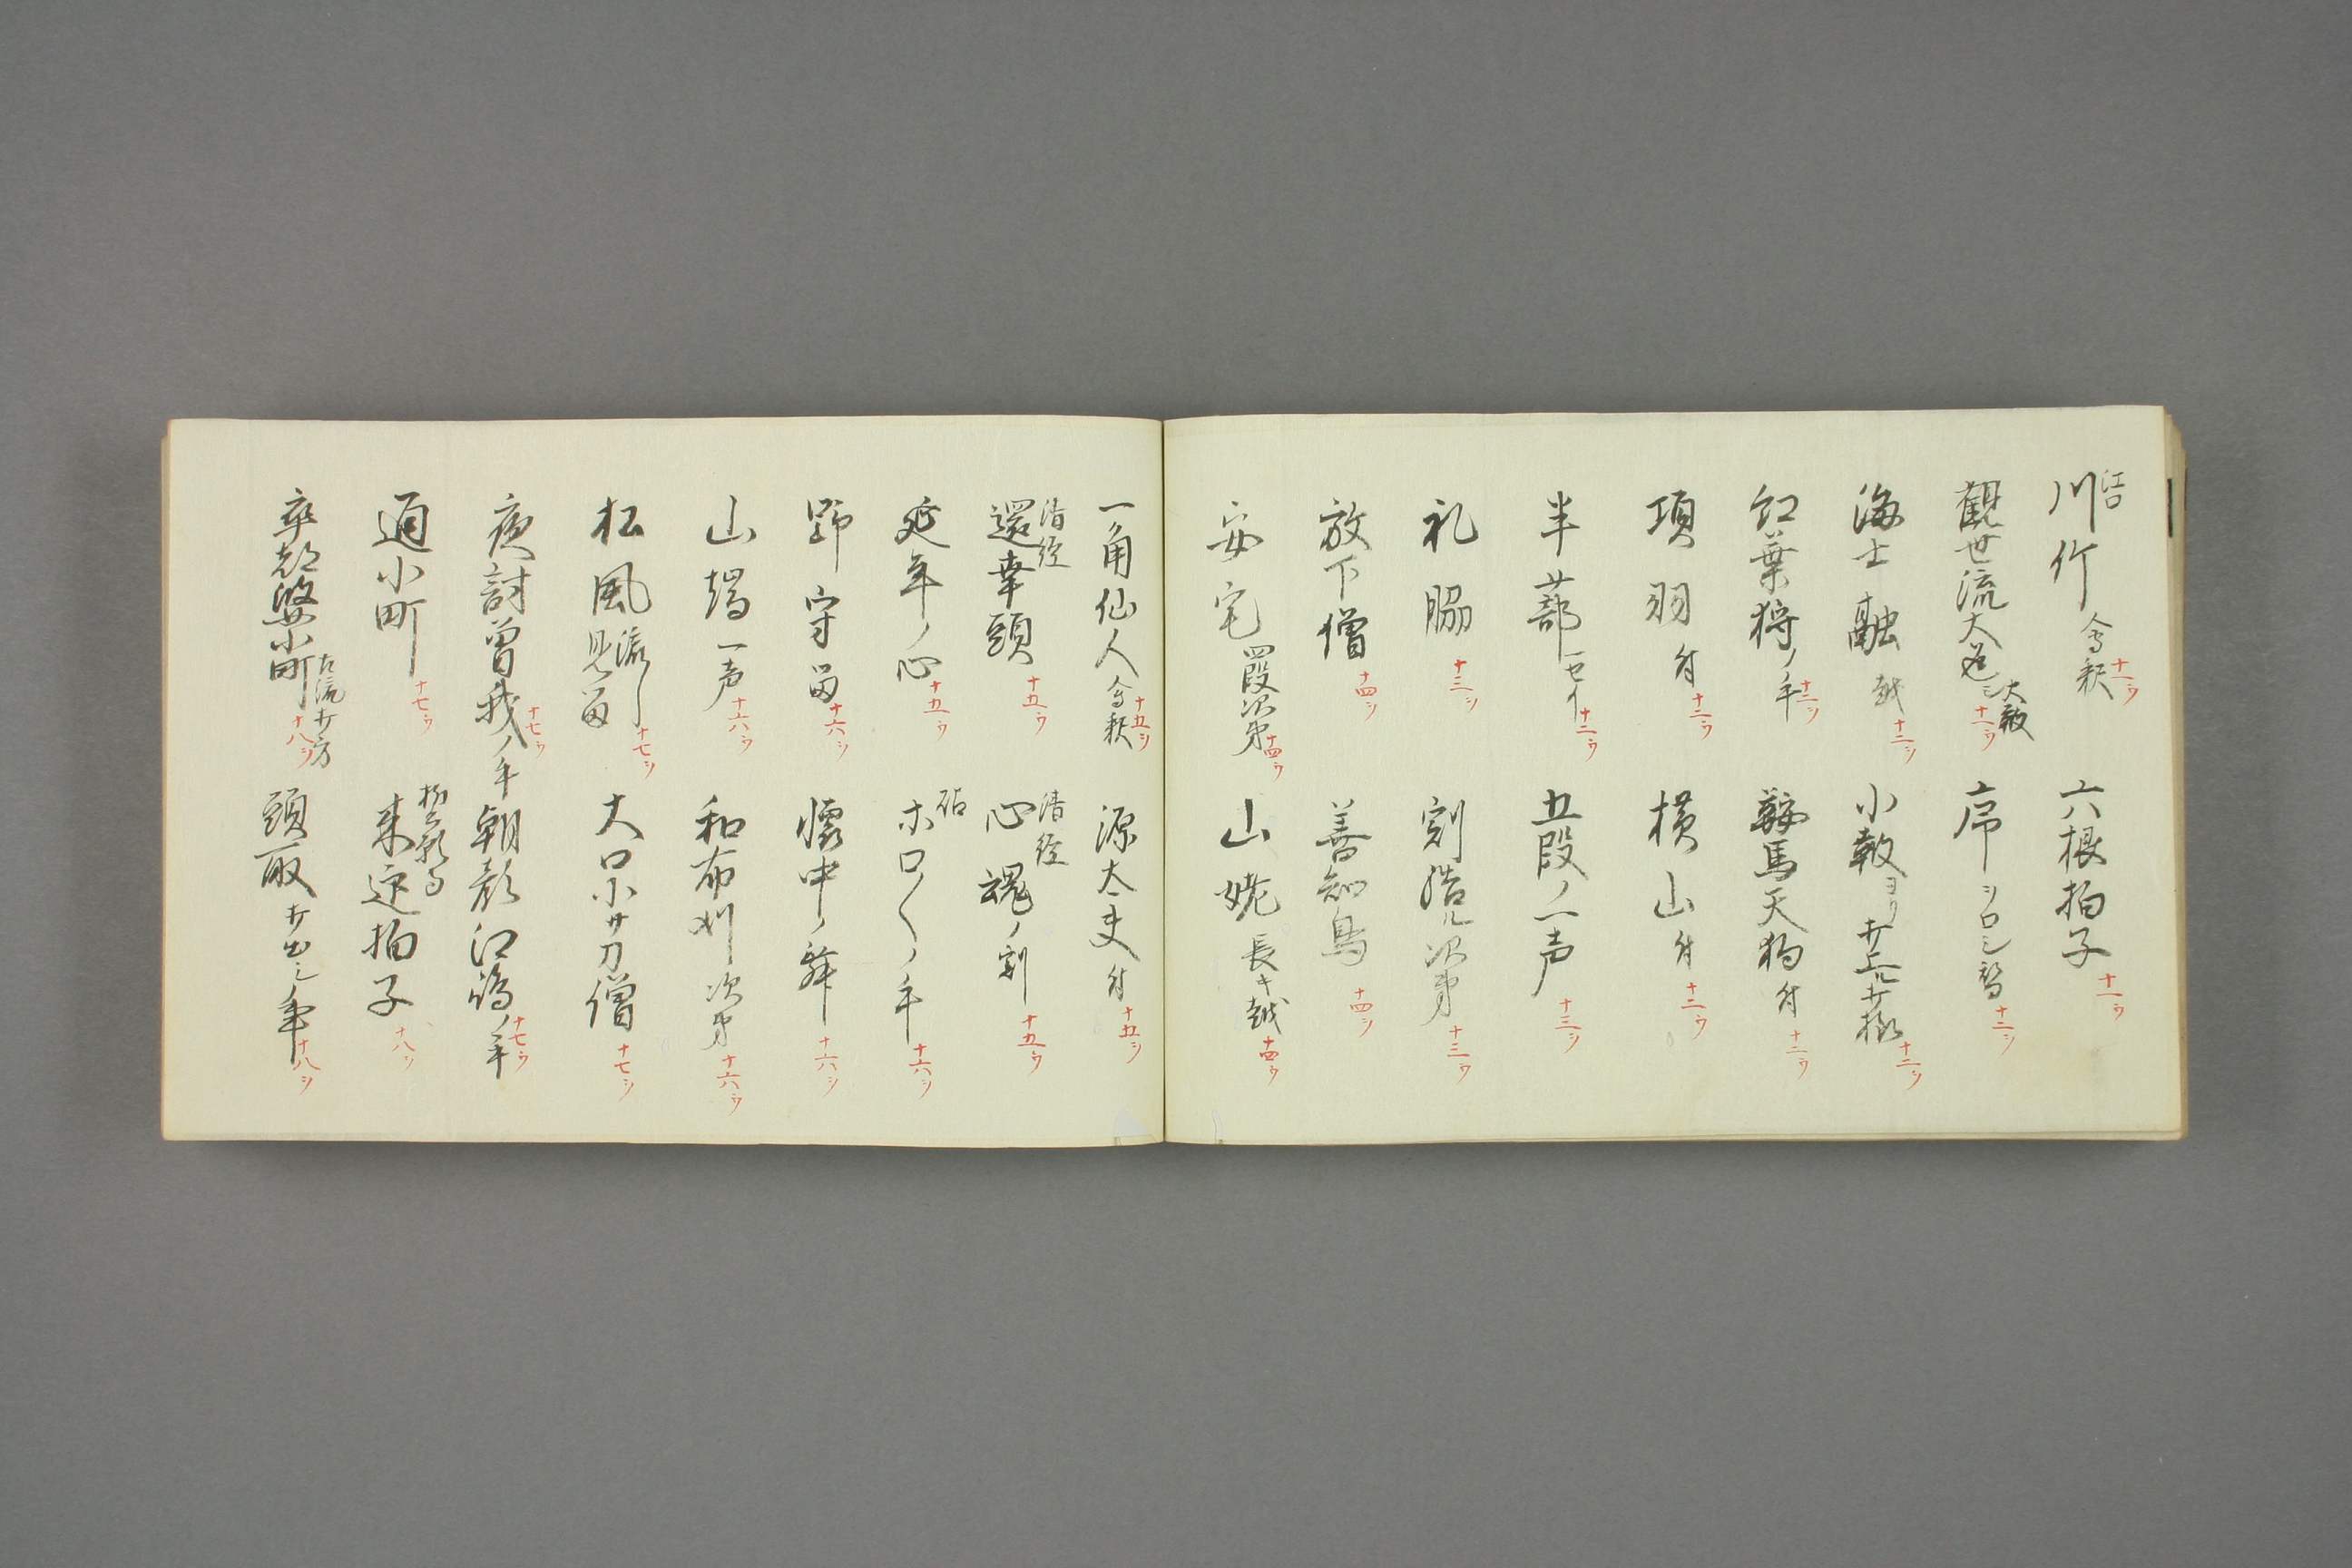 江口
川竹 会釈 十一ウ
六根拍子 十一ウ
観世流大返シ 大鞁 十一ウ
序シロシ替 十二シ
海士 融 越 十二シ
小鞁ヨリ打上ル打様 十二シ
紅葉狩ノ手 十二シ
鞍馬天狗 付 十二ウ
項羽 付 十二ウ
横山 付 十二ウ
半蔀 一セイ 十二ウ
五段ノ一声 十三シ
礼脇 十三シ
刻結ル次第 十三ウ
放下僧 十四シ
善知鳥 十四シ
安宅 四段次第 十四ウ
山姥 長キ越 十四ウ
一角仙人 会釈 十五シ
源太夫 付 十五シ
清経
還幸頭 十五ウ
清経
心魂ノ刻 十五ウ
延年ノ心 十五ウ
砧
ホロ〱ノ手 十六シ
野守 留 十六シ
懐中ノ舞 十六シ
山端 一声 十六ウ
和布刈 次第 十六ウ
松風 流シ 見留 十七シ
大口小サ刀僧 十七シ
夜討曽我ノ手 十七ウ
朝顔 江嶋ノ手 十七ウ
通小町 十七ウ
来迎拍子 十八シ
卒都婆小町 左流打方 十八シ
頭取打出シノ事 十八シ